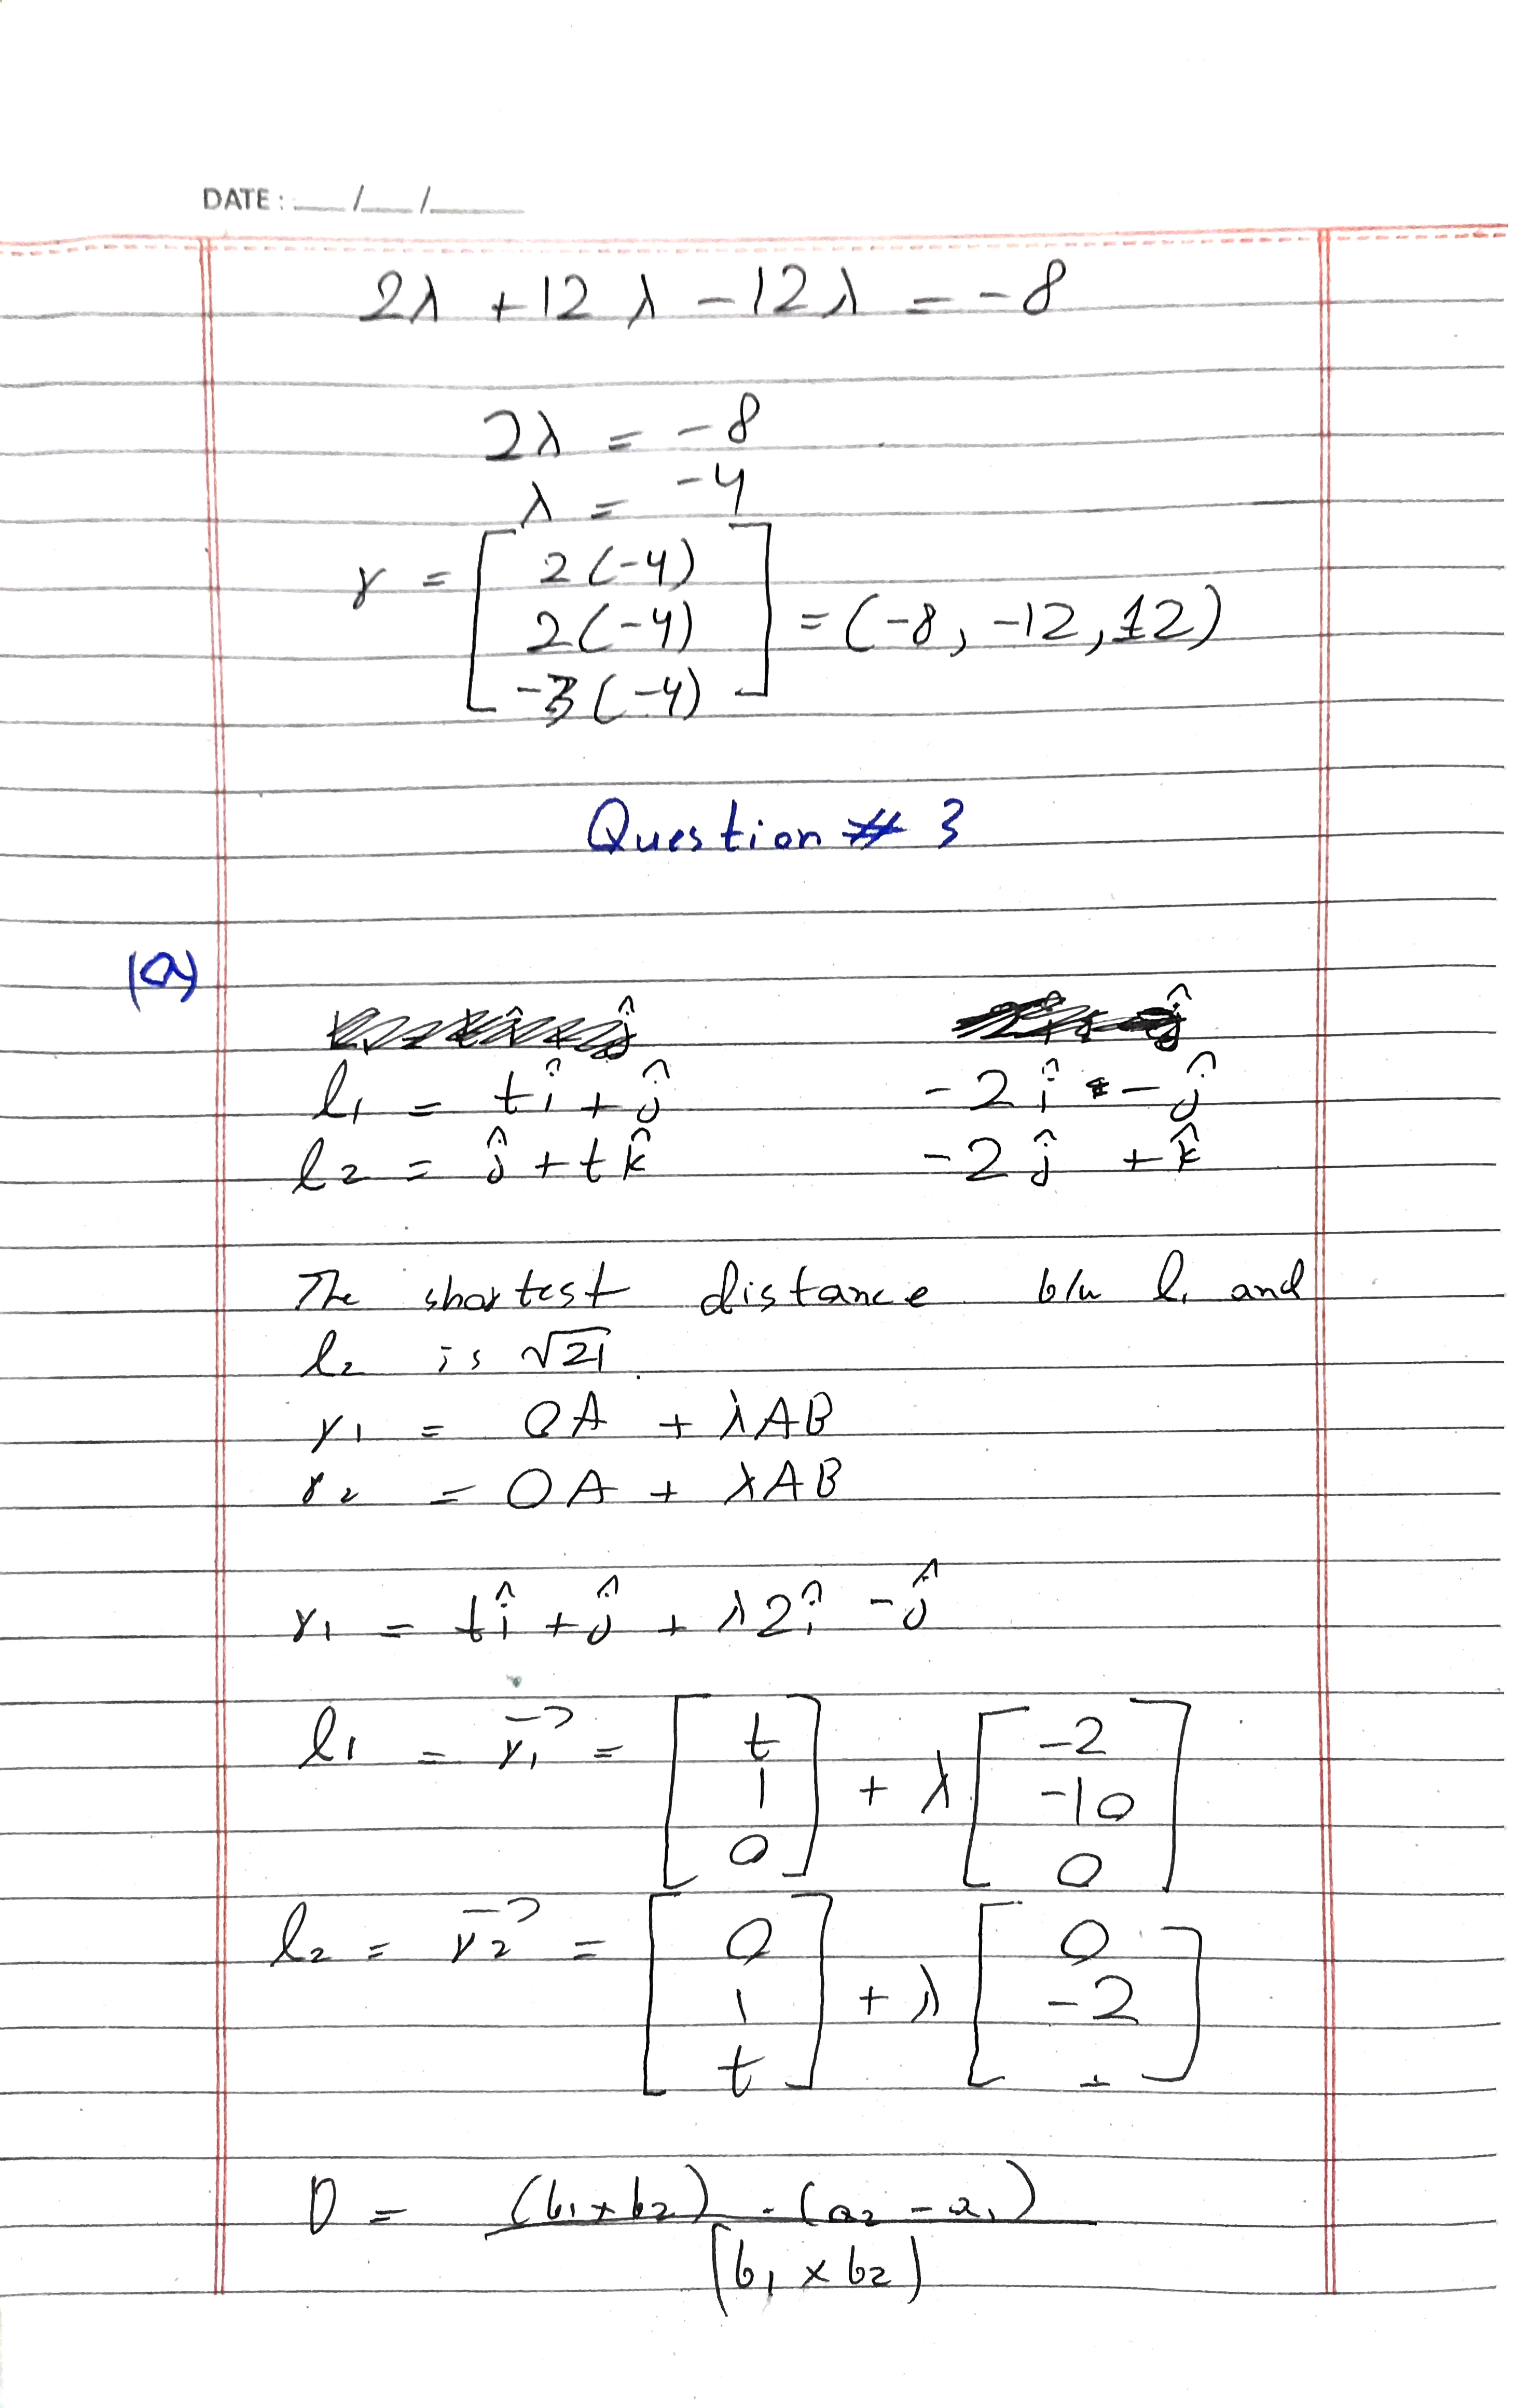 DATE: __/__/____
2λ + 12λ - 12λ = -8
2λ = -8
λ = -4
r = [ 2(-4) 
2(-4) 
-3(-4) ] = (-8, -12, 12)
Question # 3
(a)
l1 = tî + ĵ -2î - ĵ
l2 = ĵ + tk̂ -2ĵ + k̂
The shortest distance b/w l1 and
l2 is √21.
r1 = OA + λAB
r2 = OA + λAB
r1 = tî + ĵ + λ2î - ĵ
l1 = r1 = [ t 
1 
0 ] + λ [ -2 
-10 
0 ]
l2 = r2 = [ 0 
1 
t ] + λ [ 0 
-2 
1 ]
D = (b1 × b2) · (a2 - a1)
|b1 × b2|